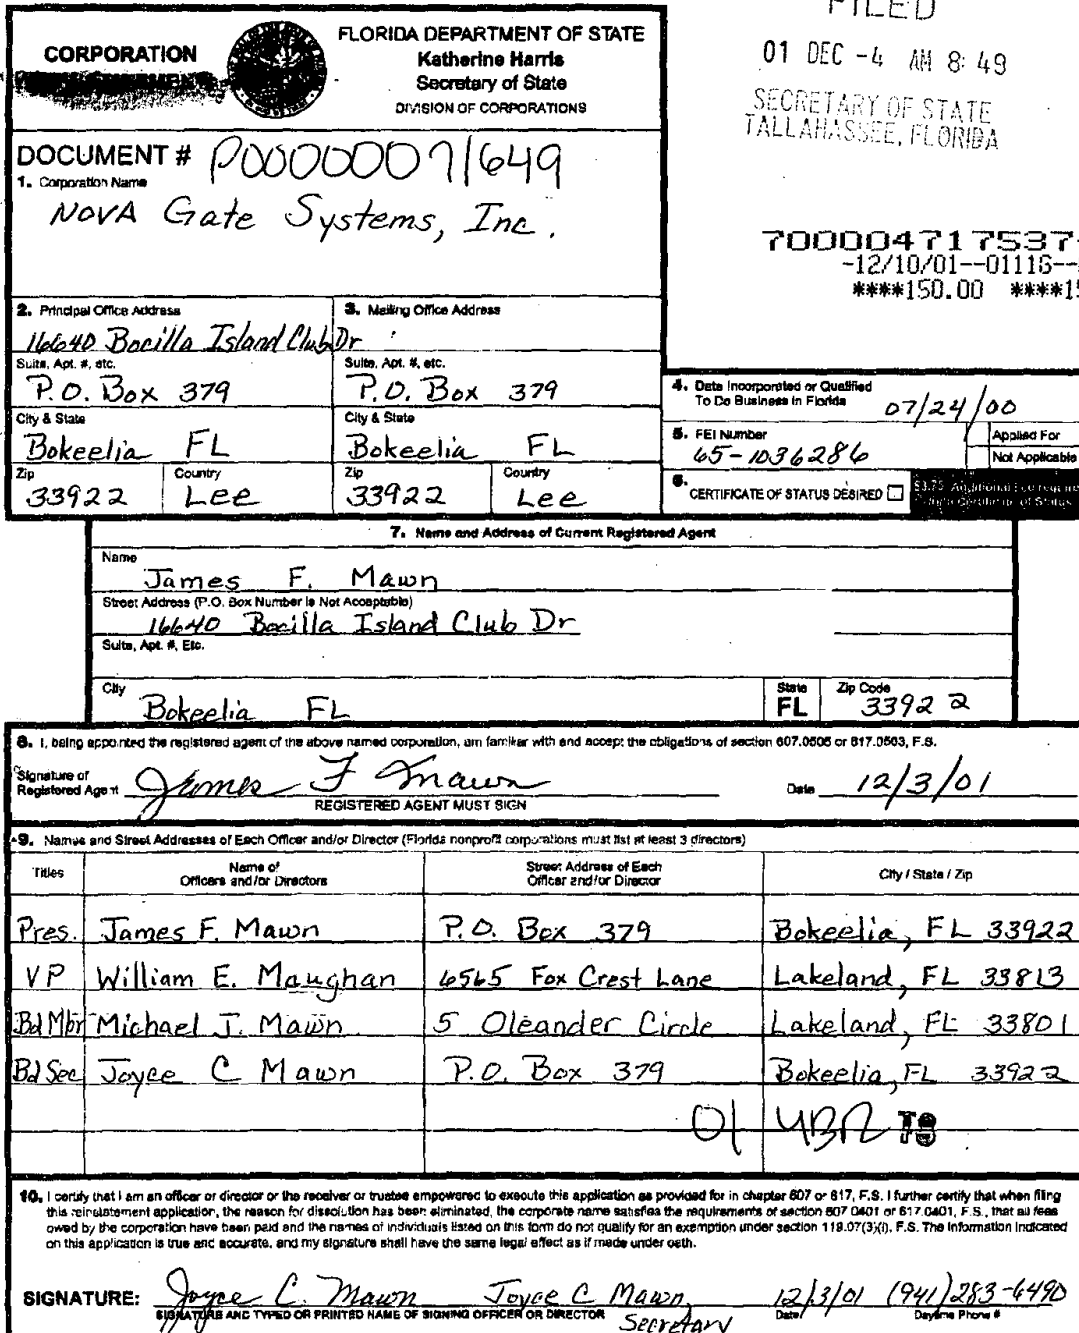 FILED
01 DEC -4 AM 8:49
SECRETARY OF STATE
TALLAHASSEE, FLORIDA
CORPORATION
FLORIDA DEPARTMENT OF STATE
Katherine Harris
Secretary of State
DIVISION OF CORPORATIONS
DOCUMENT # P00000071649
1. Corporation Name
NOVA Gate Systems, Inc.
700004717537
-12/10/01--01116--
****150.00 ****15
2. Principal Office Address
16640 Bocilla Island Club Dr
Suite, Apt. #, etc.
P.O. Box 379
City & State
Bokeelia FL
Zip Country
33922 Lee
3. Mailing Office Address
Suite, Apt. #, etc.
P.O. Box 379
City & State
Bokeelia FL
Zip Country
33922 Lee
4. Date Incorporated or Qualified
To Do Business in Florida 07/24/00
5. FEI Number
65-1036286
Applied For
Not Applicable
6. CERTIFICATE OF STATUS DESIRED
$8.75 Additional Fee required
7. Name and Address of Current Registered Agent
Name
James F. Mawn
Street Address (P.O. Box Number is Not Acceptable)
16640 Bocilla Island Club Dr
Suite, Apt. #, Etc.
City
Bokeelia FL
State
FL
Zip Code
33922
8. I, being appointed the registered agent of the above named corporation, am familiar with and accept the obligations of section 607.0505 or 617.0503, F.S.
Signature of
Registered Agent James F Mawn Date 12/3/01
REGISTERED AGENT MUST SIGN
9. Names and Street Addresses of Each Officer and/or Director (Florida nonprofit corporations must list at least 3 directors)
Titles
Name of
Officers and/or Directors
Street Address of Each
Officer and/or Director
City / State / Zip
Pres. James F. Mawn P.O. Box 379 Bokeelia, FL 33922
VP William E. Maughan 6565 Fox Crest Lane Lakeland, FL 33813
Bd Mbr Michael J. Mawn 5 Oleander Circle Lakeland, FL 33801
Bd Sec Joyce C Mawn P.O. Box 379 Bokeelia, FL 33922
01 UBR TS
10. I certify that I am an officer or director or the receiver or trustee empowered to execute this application as provided for in chapter 607 or 617, F.S. I further certify that when filing
this reinstatement application, the reason for dissolution has been eliminated, the corporate name satisfies the requirements of section 607.0401 or 617.0401, F.S., that all fees
owed by the corporation have been paid and the names of individuals listed on this form do not qualify for an exemption under section 119.07(3)(i), F.S. The information indicated
on this application is true and accurate, and my signature shall have the same legal effect as if made under oath.
SIGNATURE: Joyce C. Mawn Joyce C Mawn, 12/3/01 (941)283-6490
SIGNATURE AND TYPED OR PRINTED NAME OF SIGNING OFFICER OR DIRECTOR Date Daytime Phone #
Secretary